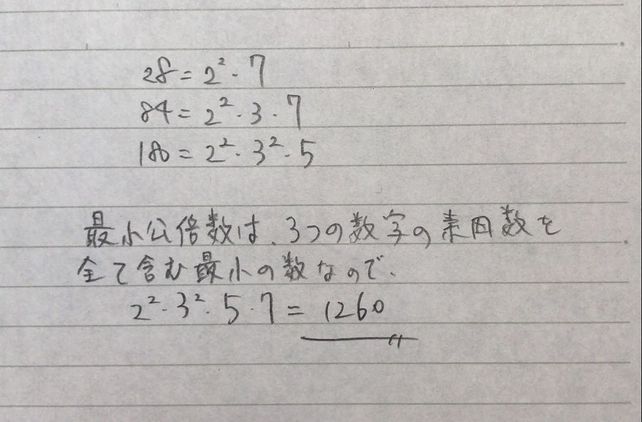 28 = 2²・7
84 = 2²・3・7
180 = 2²・3²・5
最小公倍数は、3つの数字の素因数を
全て含む最小の数なので、
2²・3²・5・7 = 1260